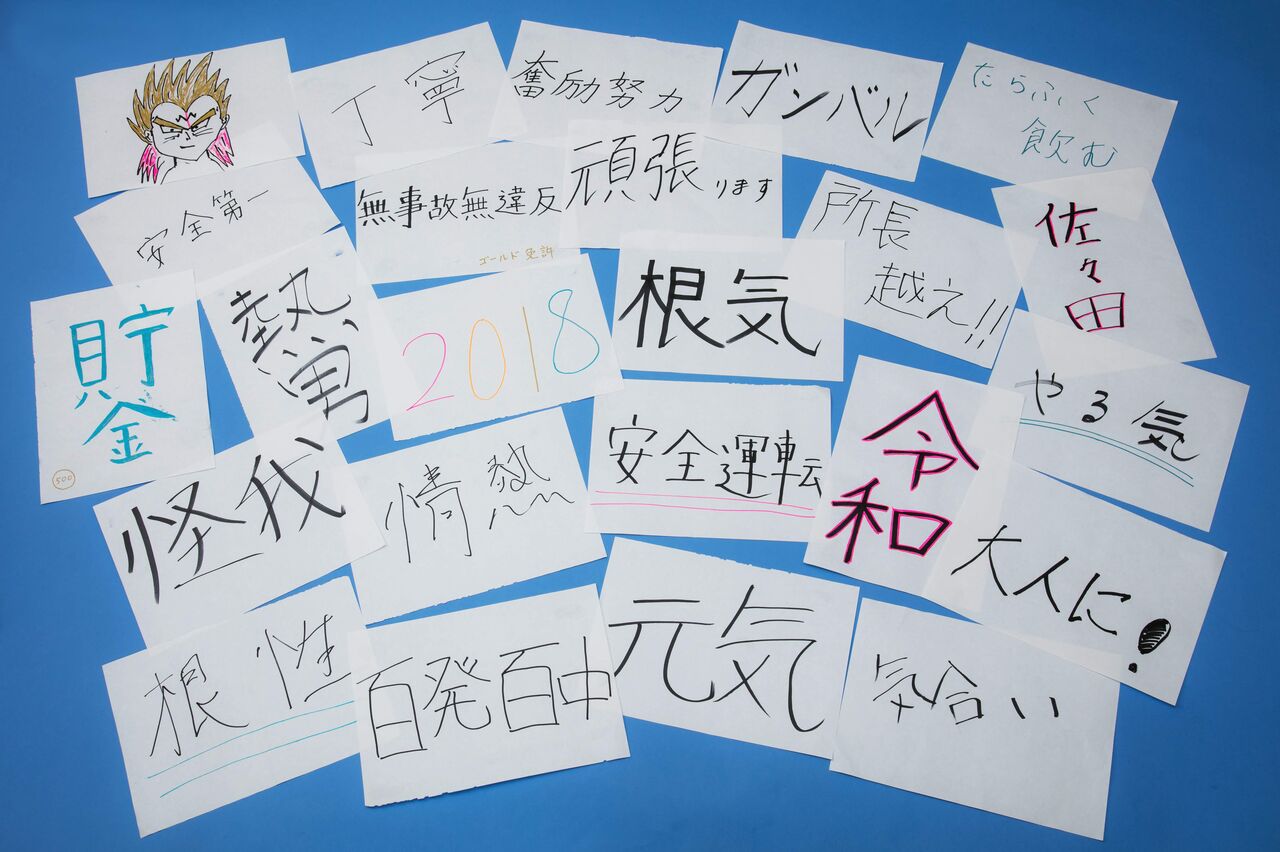 丁寧
奮励努力
ガンバル
たらふく
飲む
安全第一
無事故無違反
ゴールド免許
頑張ります
所長
越え!!
佐々田
貯金
500
熱男
2018
根気
やる気
怪我
情熱
安全運転
令和
大人に!
根性
百発百中
元気
気合い